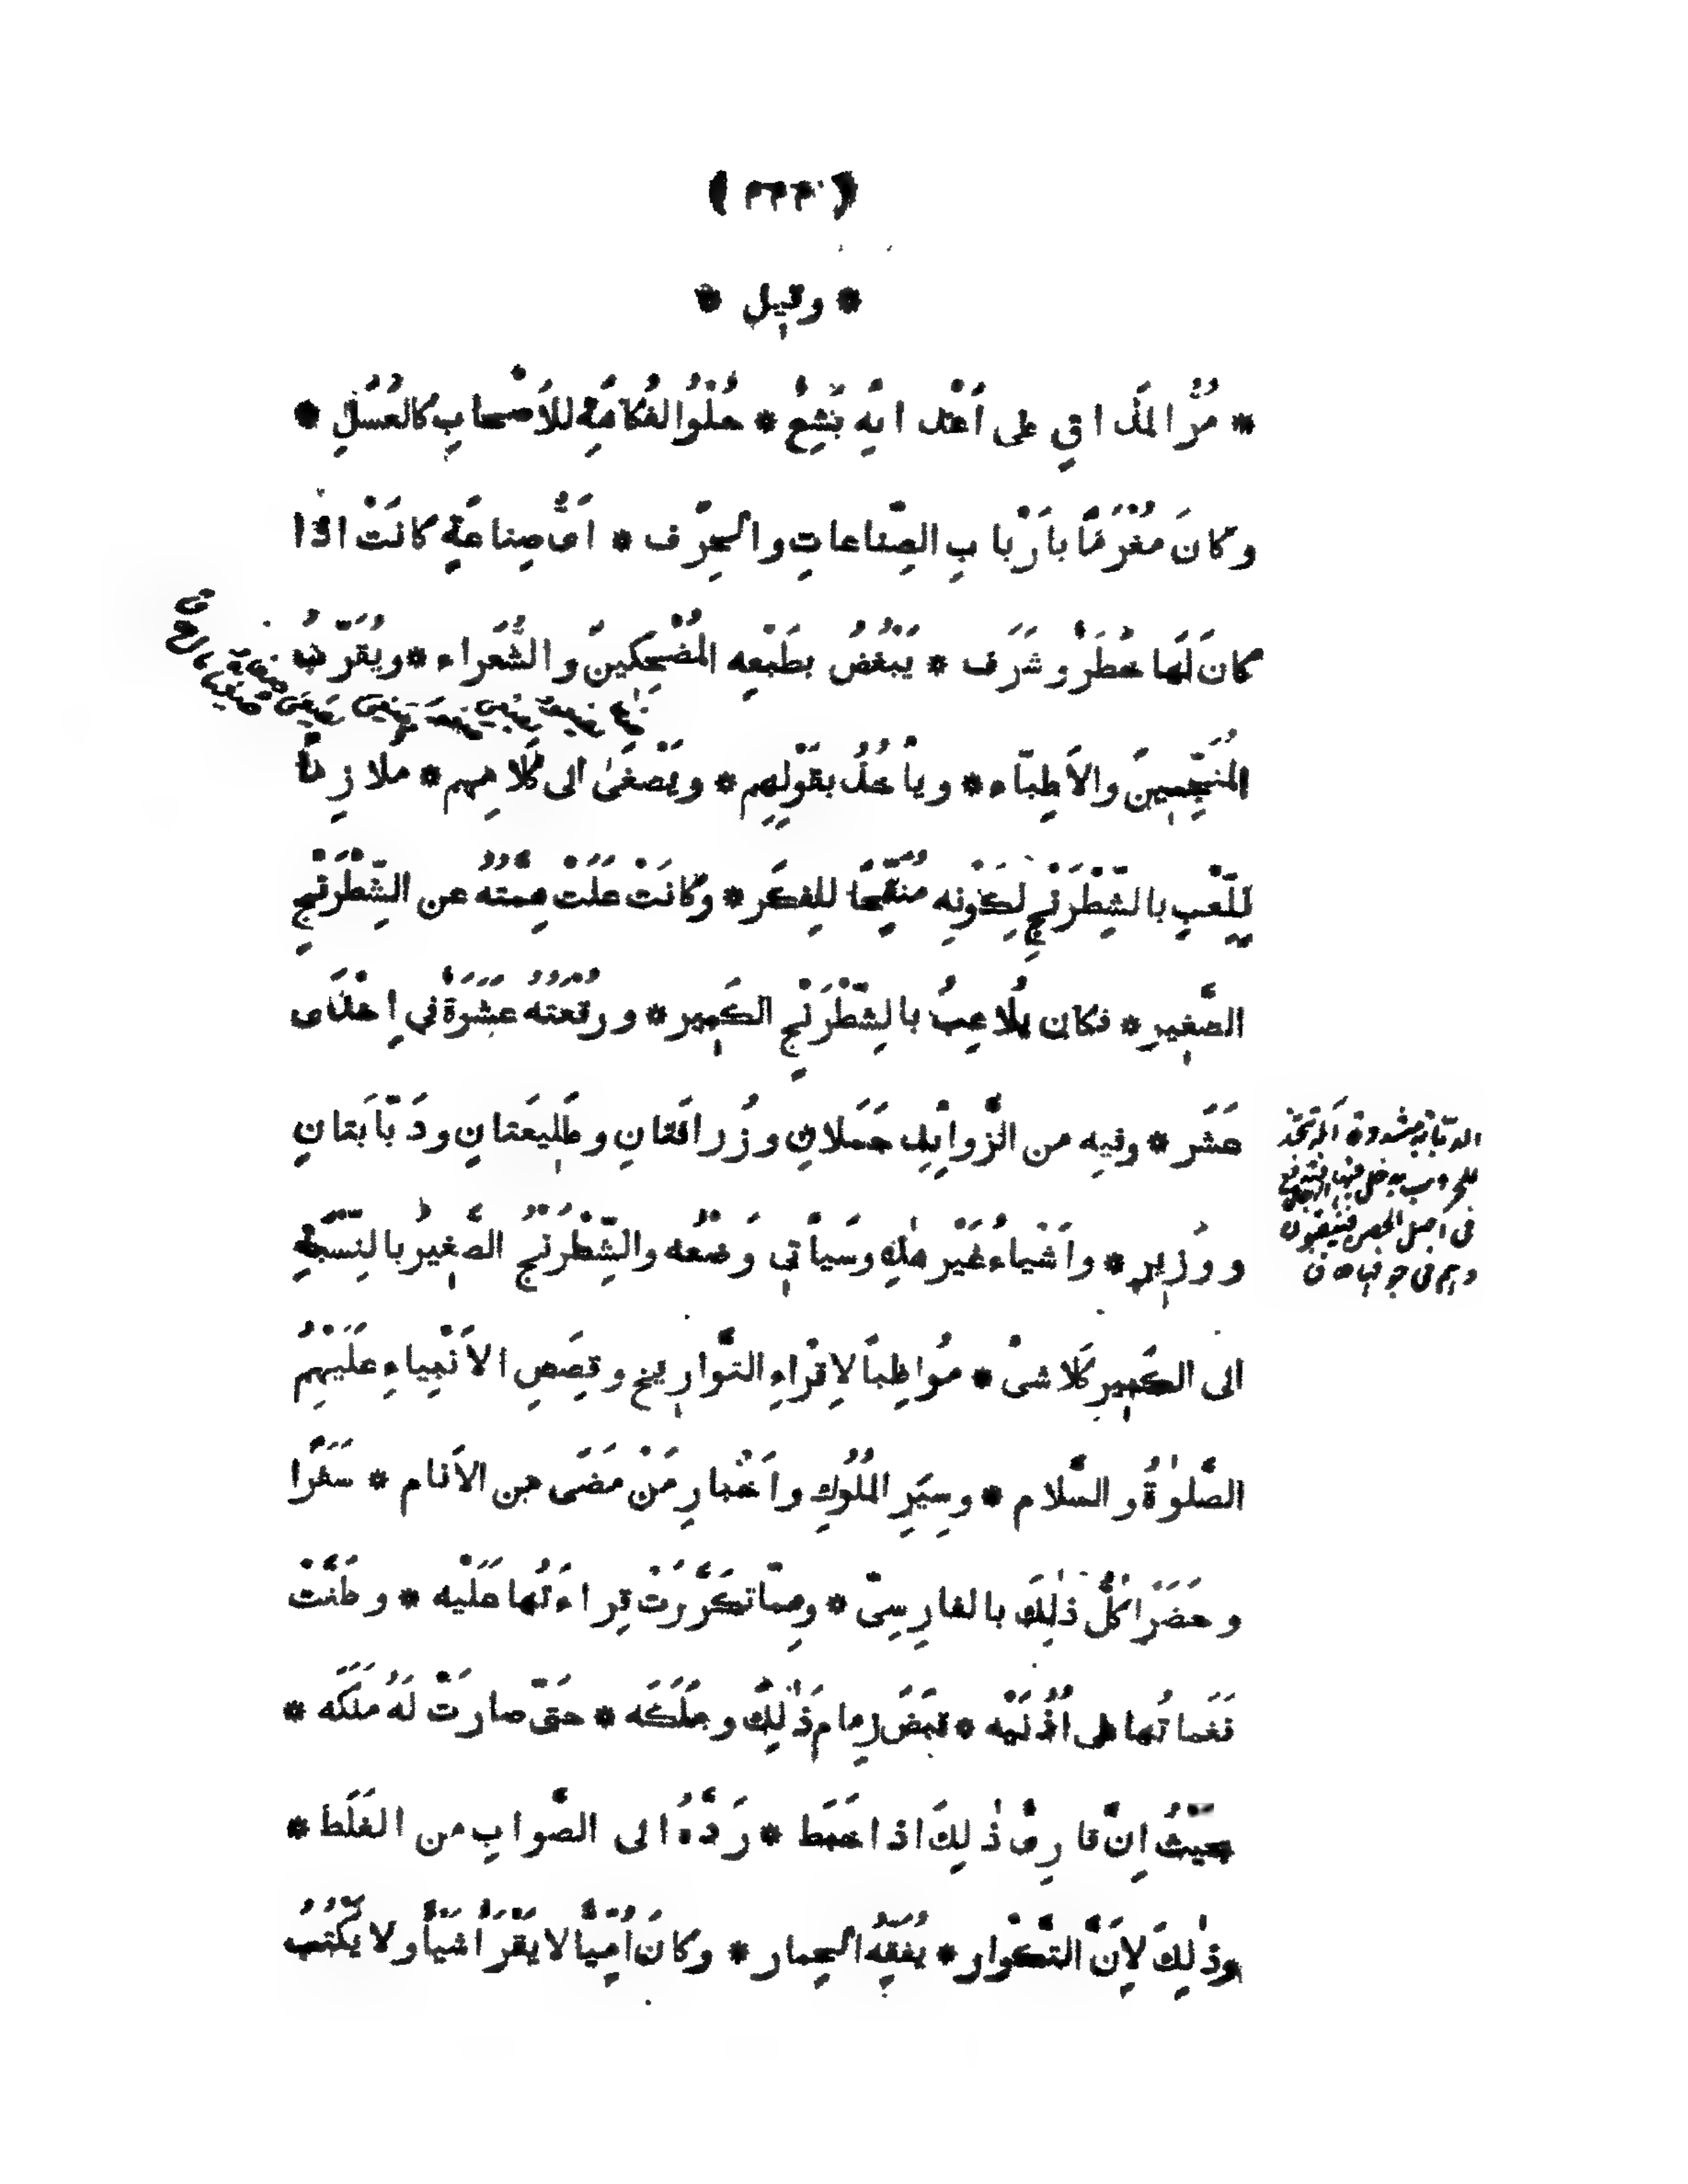 * وقيل *
* مُرُّ المَذَاقِ على اَعْدَ ايِه بَشِعُ * حُلْوُ الفُكاهَةِ للاَصْحابِ كالعَسَلِ *
وكانَ مُغْرَمًا باَرْبابِ الصِّناعاتِ والحِرَف * اَىُّ صِناعَةٍ كانَتْ اذا
كانَ لَها خَطَرٌ وشَرَف * يَبْغُضُ بطَبْعِه المُضْحِكينَ والشُّعَراء * ويُقَرِّبُ
المُنَجِّمِينَ والاَطِبّاء * وياْخُذُ بقَوْلِهِم * ويَصْغَىٰ الى كَلامِهِم * مُلازِمًا
لِلَّعْبِ بالشِّطْرَنْجِ لِكَوْنِه مُنَقِّحًا للفِكَر * وكانَتْ عَلَتْ هِمَّتُهُ عن الشِّطْرَنْجِ
الصَّغِيرِ * فكان يُلاعِبُ بالشِّطْرَنْجِ الكَبِير * ورُقْعَتُهُ عَشَرَةٌ في اِحْدَى
عَشَر * وفيه من الزَّوائِدِ جَمَلانِ وزُرافَتانِ وطَلِيعَتانِ ودَبّابَتانِ
ووَزِيرٍ * واَشْياءُ غَيْر هٰذِ وسَيأتي وَضْعُه والشِّطْرَنْجُ الصَّغِيرُ بالنِّسْبَةِ
الى الكَبِيرِ كَلا شىْ * مُواظِباً لاِقْراءِ التَّوارِيخِ وقِصَصِ الاَنْبِياءِ عَلَيْهِمُ
الصَّلوٰةُ والسَّلام * وسِيَرِ المُلُوكِ واَخْبارِ مَنْ مَضَى مِن الاَنام * سَفَرًا
وحَضَرًا كُلُّ ذٰلِكَ بالفارِسِىّ * ومِمّا تكَرَّرَتْ قِراءَتُها عَلَيْه * وطَنَّتْ
نَغَماتُها على اُذُنَيْه * قَبَضَ زِمامَ ذٰلِكَ ومَلَكَه * حَتّى صارَتْ لَهُ مَلَكَه *
بحَيْثُ اِنَّ قارِىَ ذٰلِكَ اذا خَبَط * رَدَّهُ الى الصَّوابِ من الغَلَط *
وذٰلِكَ لاِنَّ التَّكْرار * يُفَقِّهُ الحِمار * وكانَ اُمِّيّاً لا يَقْرَأُ شَيْأً ولا يَكْتُبُ